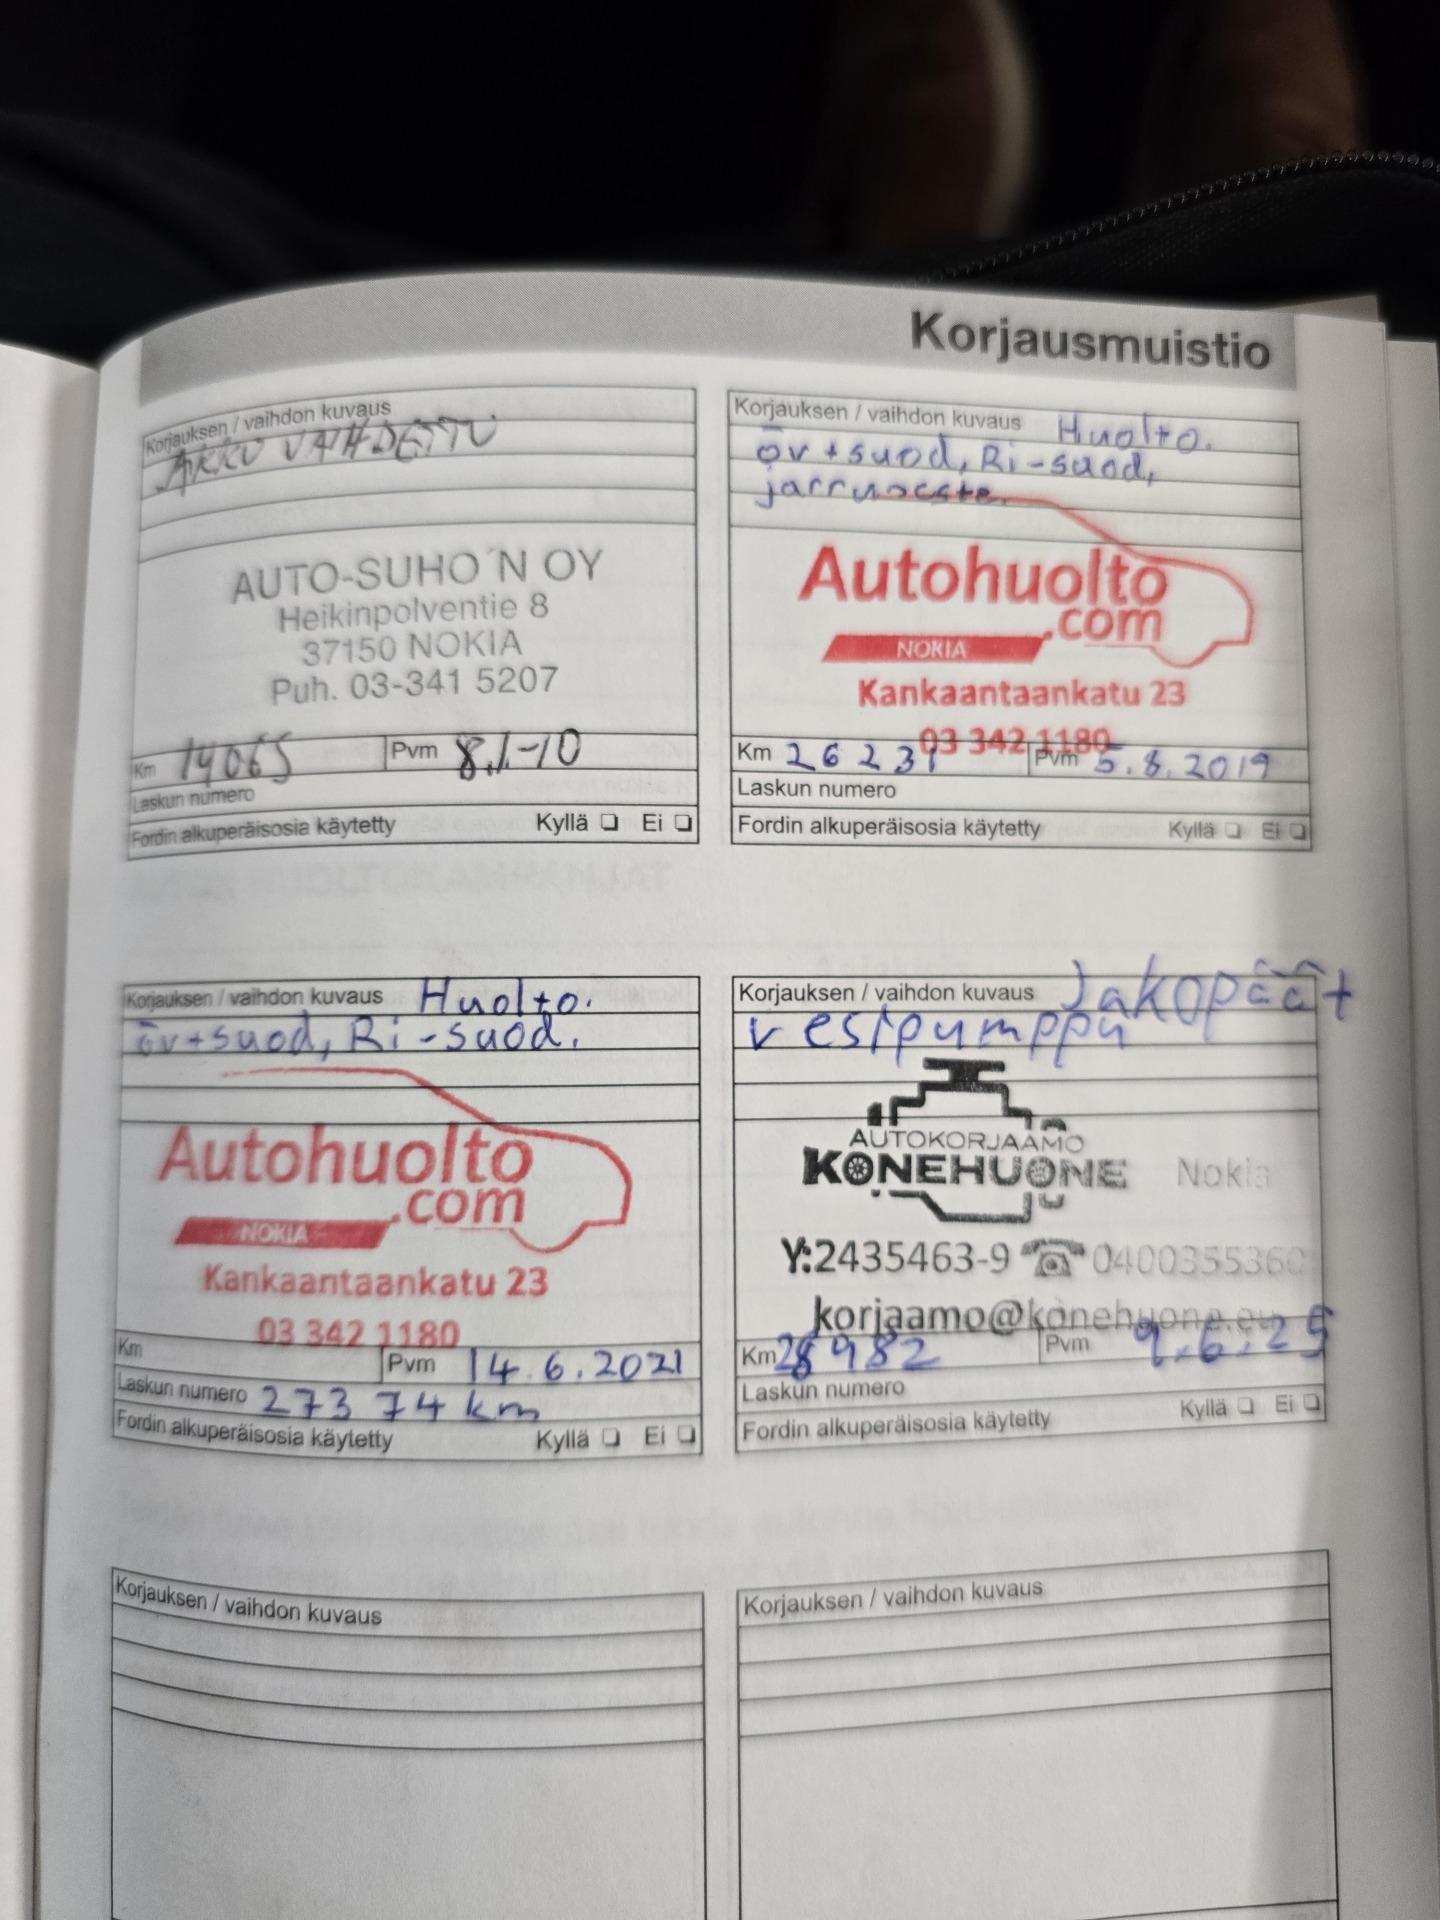 Korjausmuistio
Korjauksen / vaihdon kuvaus
AKKU VAIHDETTU
AUTO-SUHO´N OY
Heikinpolventie 8
37150 NOKIA
Puh. 03-341 5207
Km 14065 Pvm 8.1-10
Laskun numero
Fordin alkuperäisosia käytetty Kyllä ❏ Ei ❏
Korjauksen / vaihdon kuvaus Huolto.
öv+suod, Ri-suod,
jarruneste.
Autohuolto
.com
NOKIA
Kankaantaankatu 23
03 342 1180
Km 26231 Pvm 5.8.2019
Laskun numero
Fordin alkuperäisosia käytetty Kyllä ❏ Ei ❏
Korjauksen / vaihdon kuvaus Huolto.
öv+suod, Ri-suod.
Autohuolto
.com
NOKIA
Kankaantaankatu 23
03 342 1180
Km Pvm 14.6.2021
Laskun numero 27374 km
Fordin alkuperäisosia käytetty Kyllä ❏ Ei ❏
Korjauksen / vaihdon kuvaus Jakopäät
vesipumppu
AUTOKORJAAMO
KONEHUONE Nokia
Y:2435463-9 ☎ 0400355360
korjaamo@konehuone.eu
Km 28982 Pvm 9.6.25
Laskun numero
Fordin alkuperäisosia käytetty Kyllä ❏ Ei ❏
Korjauksen / vaihdon kuvaus
Korjauksen / vaihdon kuvaus